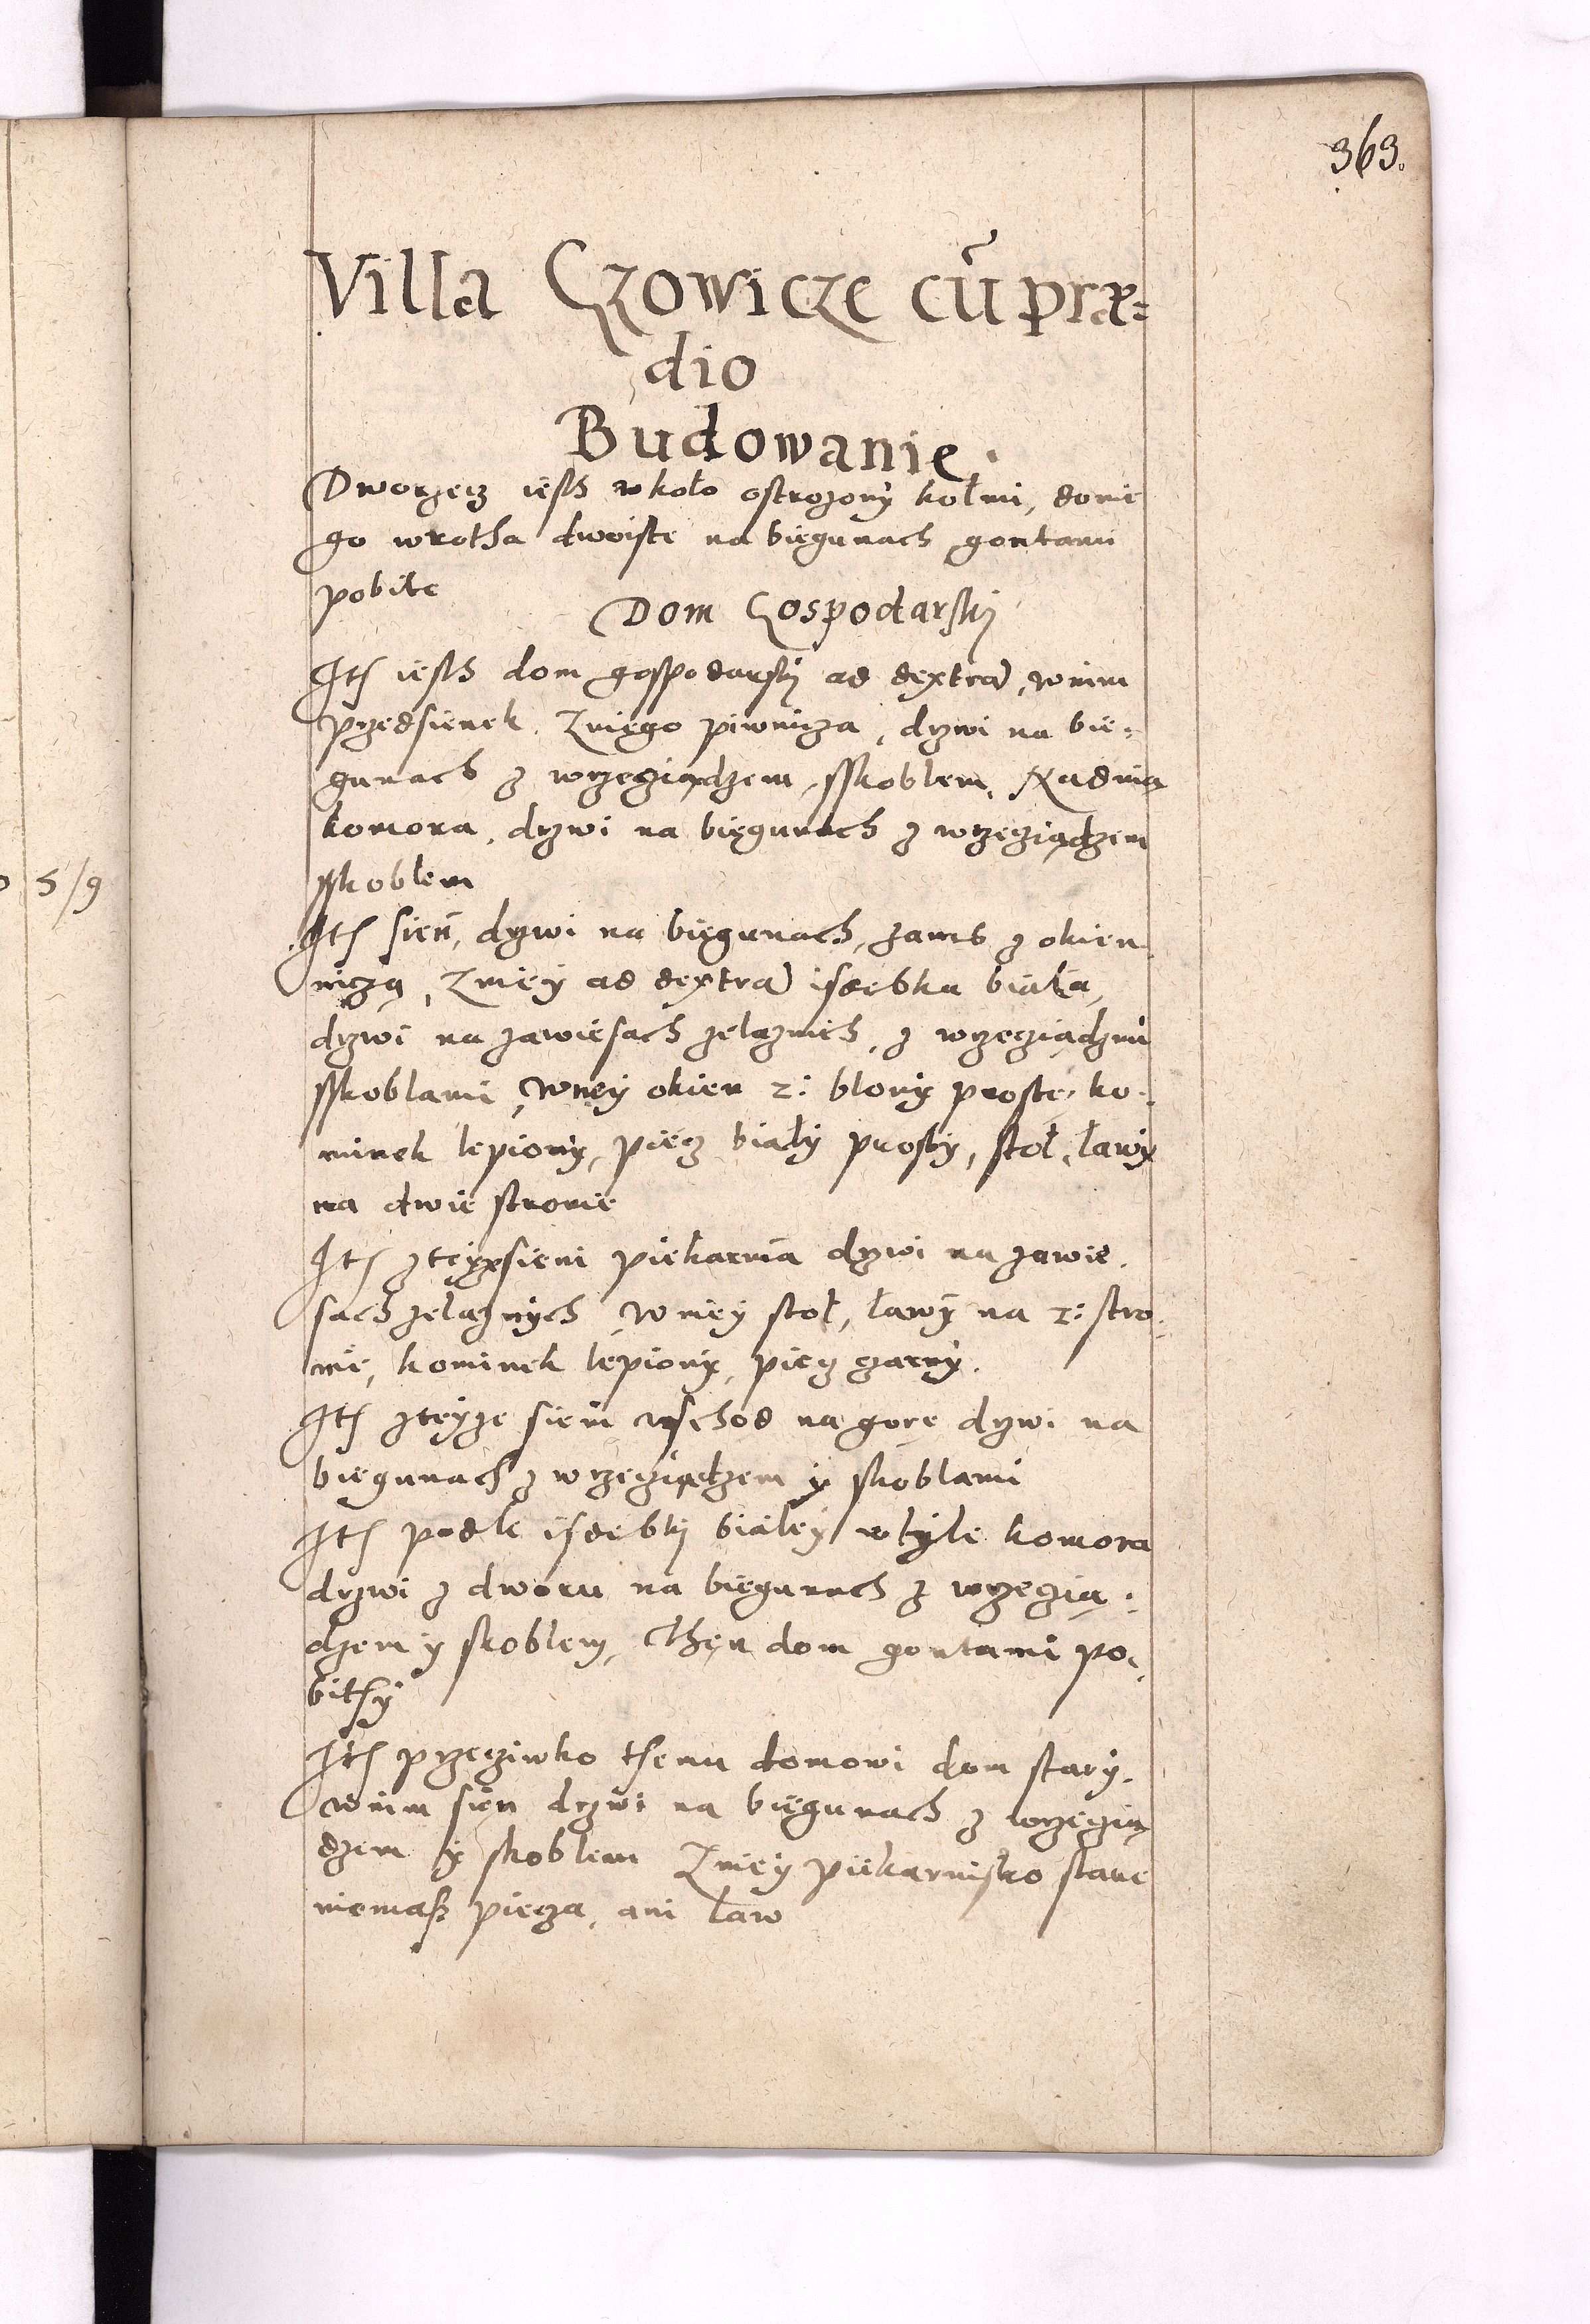 363.
Villa Czowicze cũ præ=
dio
Budowanie.
Dworzecz iesth wkoło ostrozony kołmi, donie
go wrotha dwoiste na biegunach gontami
pobite
Dom Gospodarski
Itħ iesth dom gospodarski ad dextrã, wnim
przedsienek. Zniego piwnicza, drzwi na bie:
gunach z wrzecziądzem, sskoblem. Nadnią
komora, drzwi na biegunach z wrzecziądzem
sskoblem
Itħ sień, drzwi na biegunach, z okien
niczą, Zniey ad dextrã isdebka biała,
drzwi na zawiesach zelaznich, z wrzecziądzmi
sskoblami, wney okien 2: blony proste, ko:
minek lepiony, piecz biały prosty, stoł, ławy
na dwie stronie
Itħ zteyze sieni piekarnia drzwi na zawie
sach zelaznych, wniey stoł, ławy na 2: stro:
nie, kominek lepiony, piecz czarny.
Itħ zteyze sieni wschod na gorę drzwi na
biegunach z wrzecziądzem y skoblami
Itħ podle isdebki białey wtyle komora
drzwi z dworu na biegunach z wrzeczią:
dzem y skoblem, Then dom gontami po:
bithy
Itħ przecziwko themu domowi dom stary,
wnim sień drzwi na biegunach z wrzeczią
dzem y skoblem Zniey piekarnisko stare
niemasz piecza, ani ław
5/9